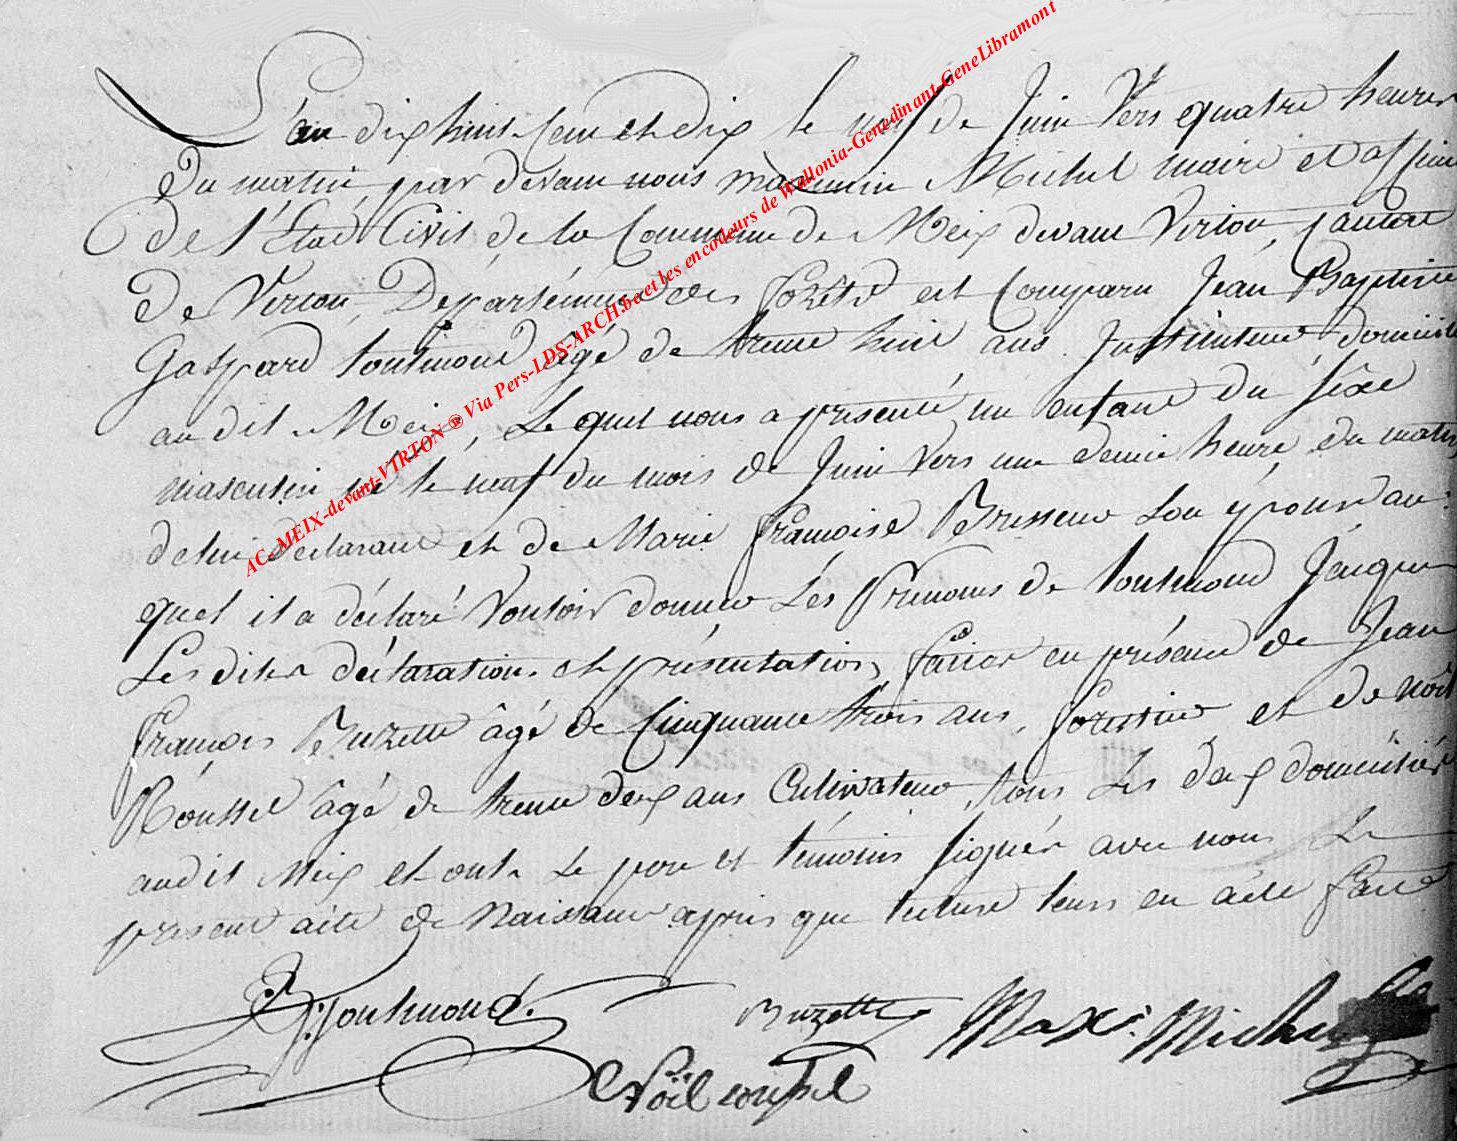 L'an dix huit cent et dix le neuf de Juin Vers quatre heures
Du matin par devant nous maximin Michel maire et officier
de l'État Civil de la Commune de Meix devant Virton, Canton
De Virton Département des forêts est Comparu Jean Baptiste
Gaspard toutmond âgé de trente huit ans Instituteur domicilié
au dit Meix, Le quel nous a présenté un enfant du sexe
masculin né le neuf du mois de Juin vers une demie heure du matin
de lui déclarant et de Marie françoise Brasseur son épouse au-
quel il a déclaré Vouloir donner Les Prénoms de toutmond Jacques
Les dites déclarations et présentation, faites en présence de Jean
françois Buzette âgé de Cinquante trois ans, forestier et de Noël
Roussel âgé de trente deux ans Cultivateur, tous Les deux domiciliés
audit Meix et ont Le père et témoins signés avec nous Le
présent acte de Naissance après que lecture leurs en a été faite
JB: G: toutmond.
Buzette
Max: Michel
Noël roussel
AC-MEIX-devant-VIRTON ® Via Pers-LDS-ARCH.be et les encodeurs de Wallonia-Genedinant-GeneLibramont